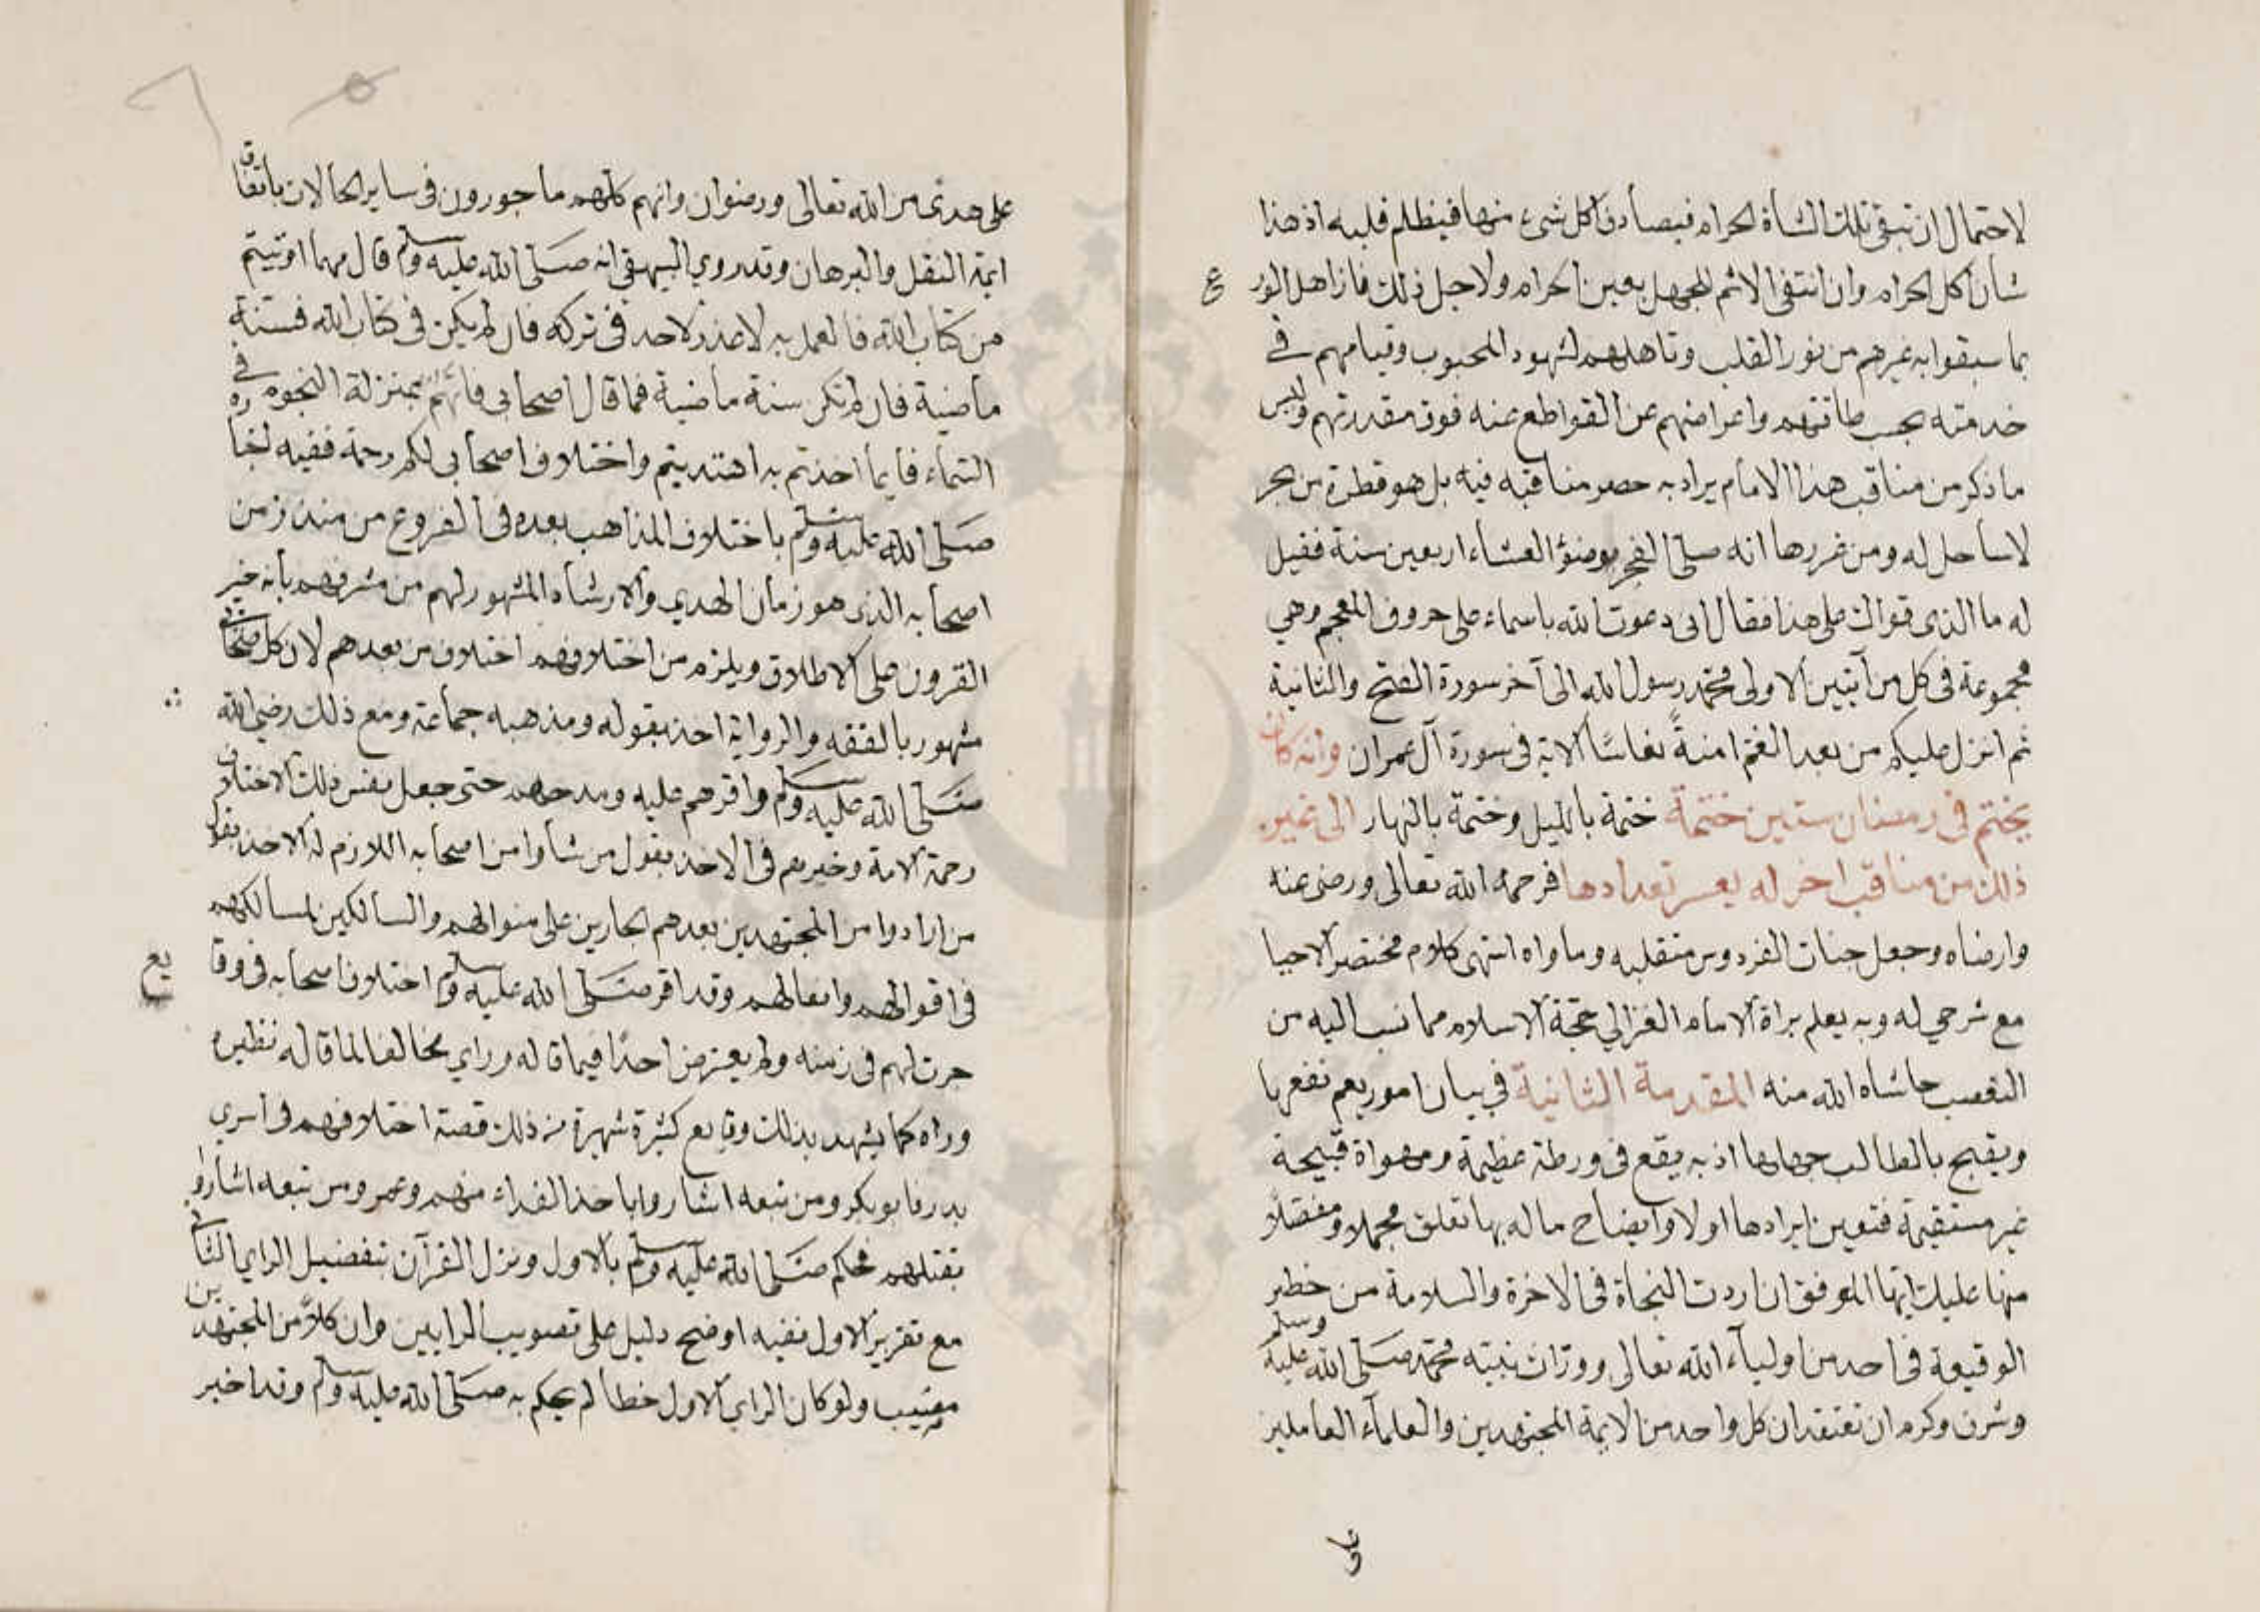 لاحتمال ان تبقى تلك الشاة الحرام فيصادف اكل شيء منها فيظلم قلبه اذ هذا
شأن اكل الحرام وان انتفى الاثم للجهل بعين الحرام ولاجل ذلك فاز اهل الور
ع
بما سبقوا به غيرهم من نور القلب وتاهلهم لشهود المحبوب وقيامهم في
خدمته بحسب طاقتهم واعراضهم عن القواطع عنه فوق مقدرتهم وليس
ما ذكر من مناقب هذا الامام يراد به حصر مناقبه فيه بل هو قطرة من بحر
لا ساحل له ومن غررها انه صلى الفجر بوضؤ العشاء اربعين سنة فقيل
له ما الذي قواك على هذا فقال اني دعوت الله باسماء على حروف المعجم وهي
مجموعة في كل من آيتين الاولى محمد رسول الله الى آخر سورة الفتح والثانية
ثم انزل عليكم من بعد الغم امنةً نعاسًا الاية في سورة آل عمران وانه كان
يختم في رمضان ستين ختمة ختمة بالليل وختمة بالنهار الى غير
ذلك من مناقب اخر له يعسر تعدادها فرحمه الله تعالى ورضى عنه
وارضاه وجعل جنات الفردوس متقلبه وماواه انتهى كلام مختصر الاحيا
مع شرحي له وبه يعلم براة الامام الغزالي حجة الاسلام مما نسب اليه من
التعصب حاشاه الله منه المقدمة الثانية في بيان امور يعم نفعها
ويقبح بالطالب جهلها اذ به يقع في ورطة عظيمة ومهواة قبيحة
غير مستقيمة فتعين ايرادها اولا وايضاح ما له بها تعلق مجملا ومفصلًا
منها عليك ايها الموفق ان اردت النجاة في الاخرة والسلامة من خطر
الوقيعة في احد من اولياء الله تعالى ووراث نبيه محمد صلى الله عليه وسلم
وشرف وكرم ان تعتقد ان كل واحد من الايمة المجتهدين والعلماء العاملين
على هدى من الله تعالى ورضوان وانهم كلهم ماجورون في ساير الحالات باتفاق
ايمة النقل والبرهان وقد روي البيهقي انه صلى الله عليه وسلم قال مهما اوتيتم
من كتاب الله فالعمل به لا عذر لاحد في تركه فان لم يكن في كتاب الله فسنة
ماضية فان لم تكن سنة ماضية فما قال اصحابي فانهم بمنزلة النجوم في
السماء فايما اخذتم به اهتديتم واختلاف اصحابي لكم رحمة ففيه اخباره
صلى الله عليه وسلم باختلاف المذاهب بعده في الفروع من منذ زمن
اصحابه الذي هو زمان الهدي والارشاد المشهور لهم من مشرفهم بانه خير
القرون على الاطلاق ويلزم من اختلافهم اختلاف من بعدهم لان كل صحابي
مشهور بالفقه والرواية اخذ بقوله ومذهبه جماعة ومع ذلك رضي الله
صلى الله عليه وسلم واقرهم عليه ومدحهم حتى جعل نفس ذلك الاختلاف
رحمة الامة وخيرهم في الاخذ بقول من شاوا من اصحابه اللازم له الاخذ بقول
من ارادوا من المجتهدين بعدهم الجارين على منوالهم والسالكين لمسالكهم
في اقوالهم وافعالهم وقد اقر صلى الله عليه وسلم اختلاف اصحابه في وقا
يع
جرت لهم في زمنه ولم يعترض احدًا فيما قاله وراي مخالفا لما قاله نظيره
وراه كما يشهد بذلك وقايع كثيرة شهيرة من ذلك قصة اختلافهم في اسري
بدر فابو بكر ومن تبعه اشاروا باخذ الفداء منهم وعمر ومن تبعه اشاروا
بقتلهم فحكم صلى الله عليه وسلم بالاول ونزل القرآن بتفضيل الراي الثاني
مع تقرير الاول ففيه اوضح دليل على تصويب الرايين وان كلًا من المجتهدين
مصيب ولو كان الراي الاول خطا لم يحكم به صلى الله عليه وسلم وقد اخبر